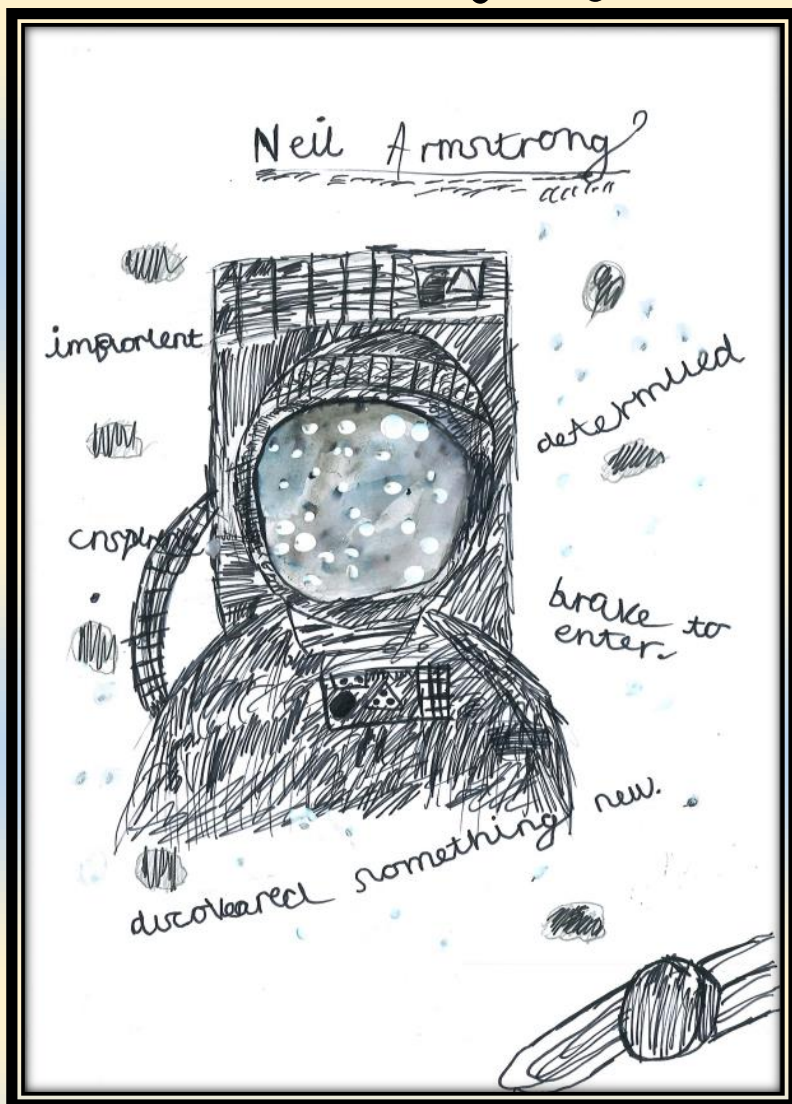 Neil Armstrong
importent
determued
brake to
enter.
discoveared something new.